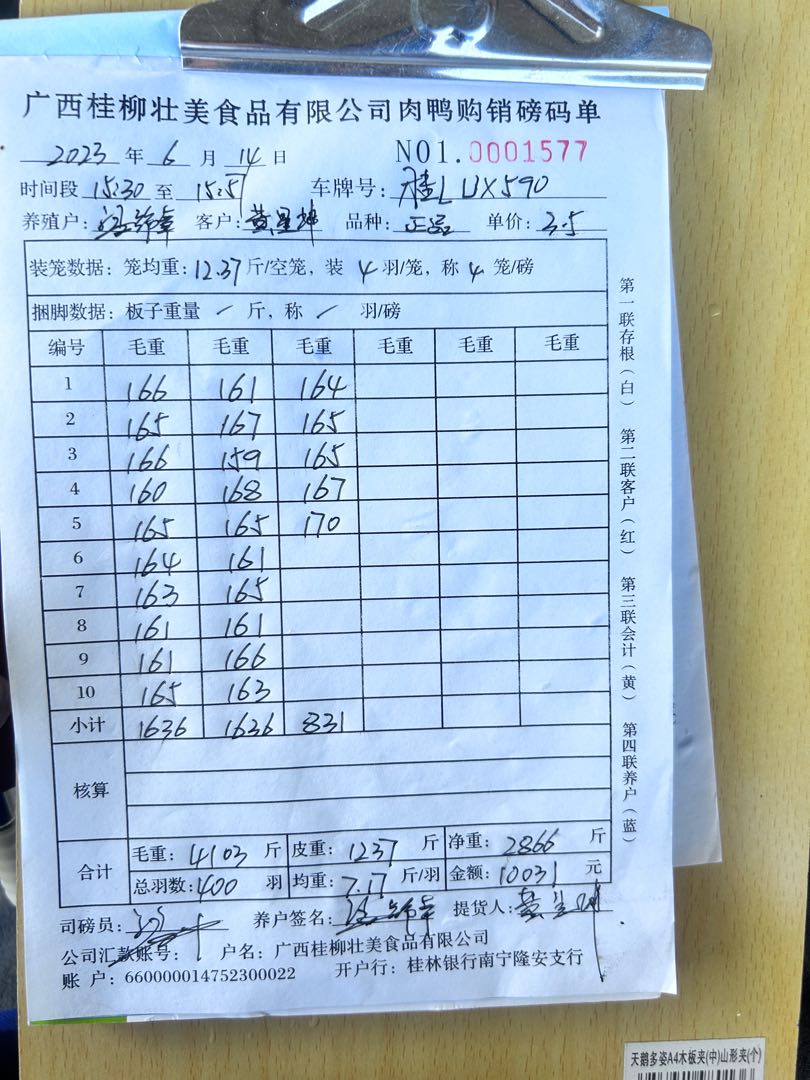 广西桂柳壮美食品有限公司肉鸭购销磅码单
2023 年 6 月 14 日 NO1.0001577
时间段 15:30 至 15:57 车牌号: 桂L UX590
养殖户: 客户: 黄星坤 品种: 正品 单价: 3.5
装笼数据: 笼均重: 12.37 斤/空笼, 装 4 羽/笼, 称 4 笼/磅
捆脚数据: 板子重量 / 斤, 称 / 羽/磅
编号 毛重 毛重 毛重 毛重 毛重 毛重
1 166 161 164
2 165 167 165
3 166 159 165
4 160 168 167
5 165 165 170
6 164 161
7 163 165
8 161 161
9 161 166
10 165 163
小计 1636 1636 831
核算
合计 毛重: 4103 斤 皮重: 1237 斤 净重: 2866 斤
总羽数: 400 羽 均重: 7.17 斤/羽 金额: 10031 元
司磅员: 养户签名: 提货人: 黄星坤
公司汇款账号: 户名: 广西桂柳壮美食品有限公司
账 户: 660000014752300022 开户行: 桂林银行南宁隆安支行
第一联存根(白) 第二联客户(红) 第三联会计(黄) 第四联养户(蓝)
天鹅多姿A4木板夹(中)山形夹(个)